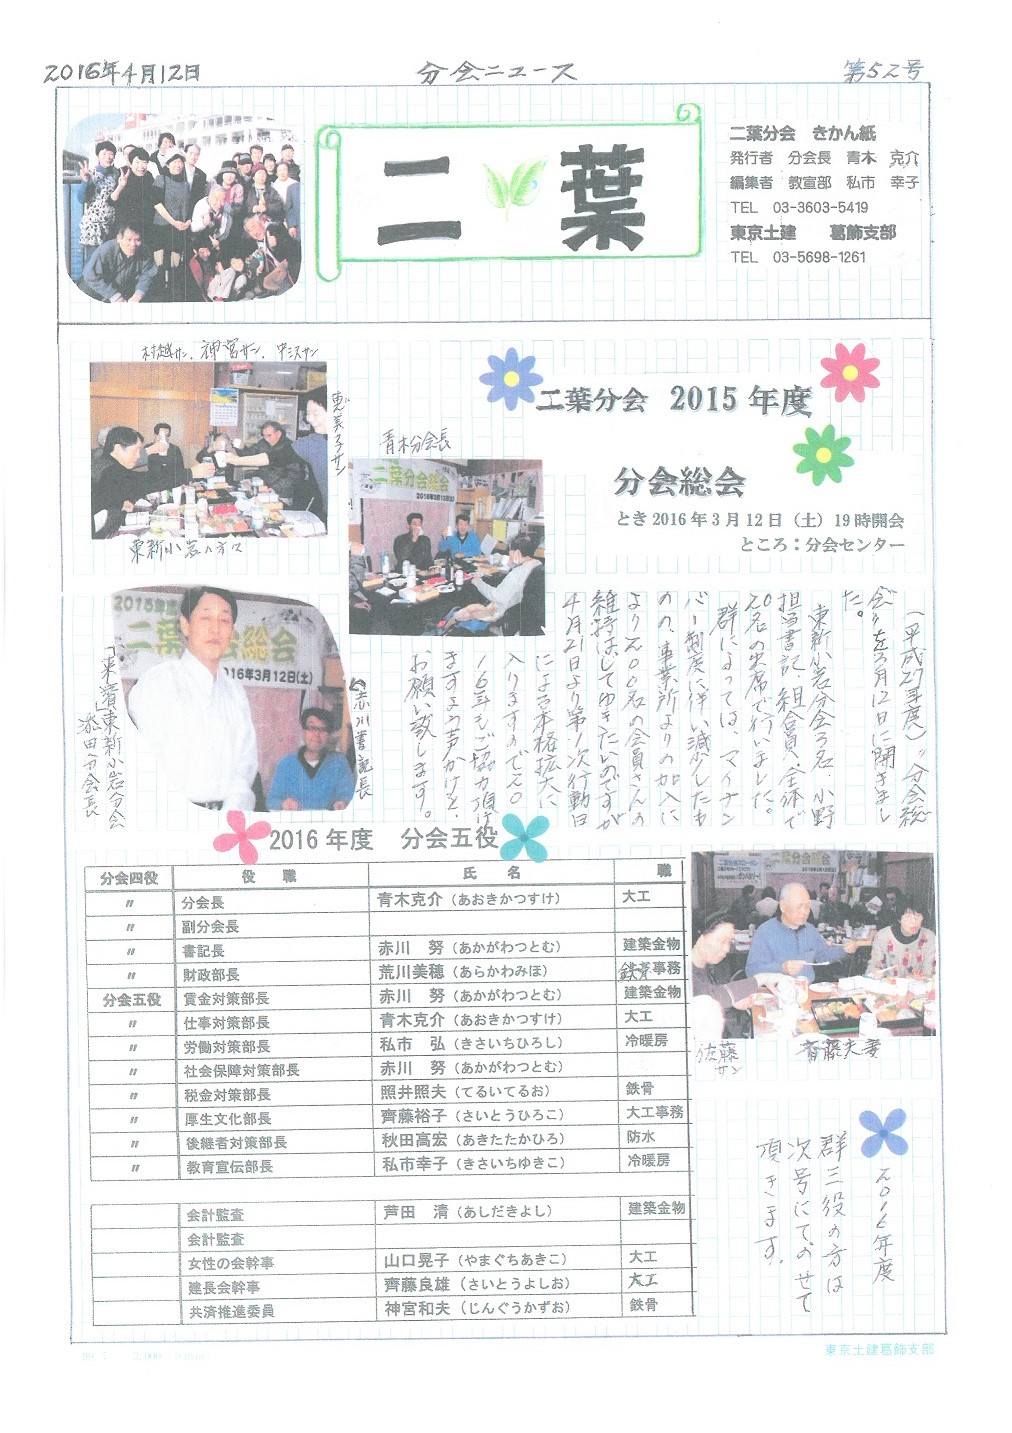 2016年4月12日 分会ニュース 第52号
二葉
二葉分会 きかん紙
発行者 分会長 青木 克介
編集者 教宣部 私市 幸子
TEL 03-3603-5419
東京土建 葛飾支部
TEL 03-5698-1261
村越サン、神宮サン、中沢サン
恵美子サン
東新小岩の方々
青木分会長
二葉分会総会
2016年3月12日(土)
二葉分会 2015年度
分会総会
とき 2016年3月12日(土)19時開会
ところ:分会センター
(平成27年度)〃分会総
会〃を3月12日に開きまし
た。
東新小岩分会3名・小野
担当書記、組合員、全体で
20名の出席で行いました。
群によっては、マイナン
バー制度に伴い減少したも
のの、事業所よりの加入に
より200名の会員さんの
維持はしてゆきたいのですが
4月21日より第1次行動日
による本格拡大に
入りますので20
16年もご協力頂け
ますよう声かけを、
お願い致します。
赤川書記長
2015年度
二葉分会総会
2016年3月12日(土)
「来賓」東新小岩分会
分会長
2016年度 分会五役
分会四役 役職 氏名 職
〃 分会長 青木克介(あおきかつすけ) 大工
〃 副分会長
〃 書記長 赤川 努(あかがわつとむ) 建築金物
〃 財政部長 荒川美穂(あらかわみほ) 鉄骨事務
分会五役 賃金対策部長 赤川 努(あかがわつとむ) 建築金物
〃 仕事対策部長 青木克介(あおきかつすけ) 大工
〃 労働対策部長 私市 弘(きさいちひろし) 冷暖房
〃 社会保障対策部長 赤川 努(あかがわつとむ)
〃 税金対策部長 照井照夫(てるいてるお) 鉄骨
〃 厚生文化部長 齊藤裕子(さいとうひろこ) 大工事務
〃 後継者対策部長 秋田高宏(あきたたかひろ) 防水
〃 教育宣伝部長 私市幸子(きさいちゆきこ) 冷暖房
会計監査 芦田 清(あしだきよし) 建築金物
会計監査
女性の会幹事 山口晃子(やまぐちあきこ) 大工
建長会幹事 齊藤良雄(さいとうよしお) 大工
共済推進委員 神宮和夫(じんぐうかずお) 鉄骨
二葉分会総会
佐藤サン
斉藤夫妻
2016年度
群三役の方は
次号にてのせて
頂きます。
東京土建葛飾支部